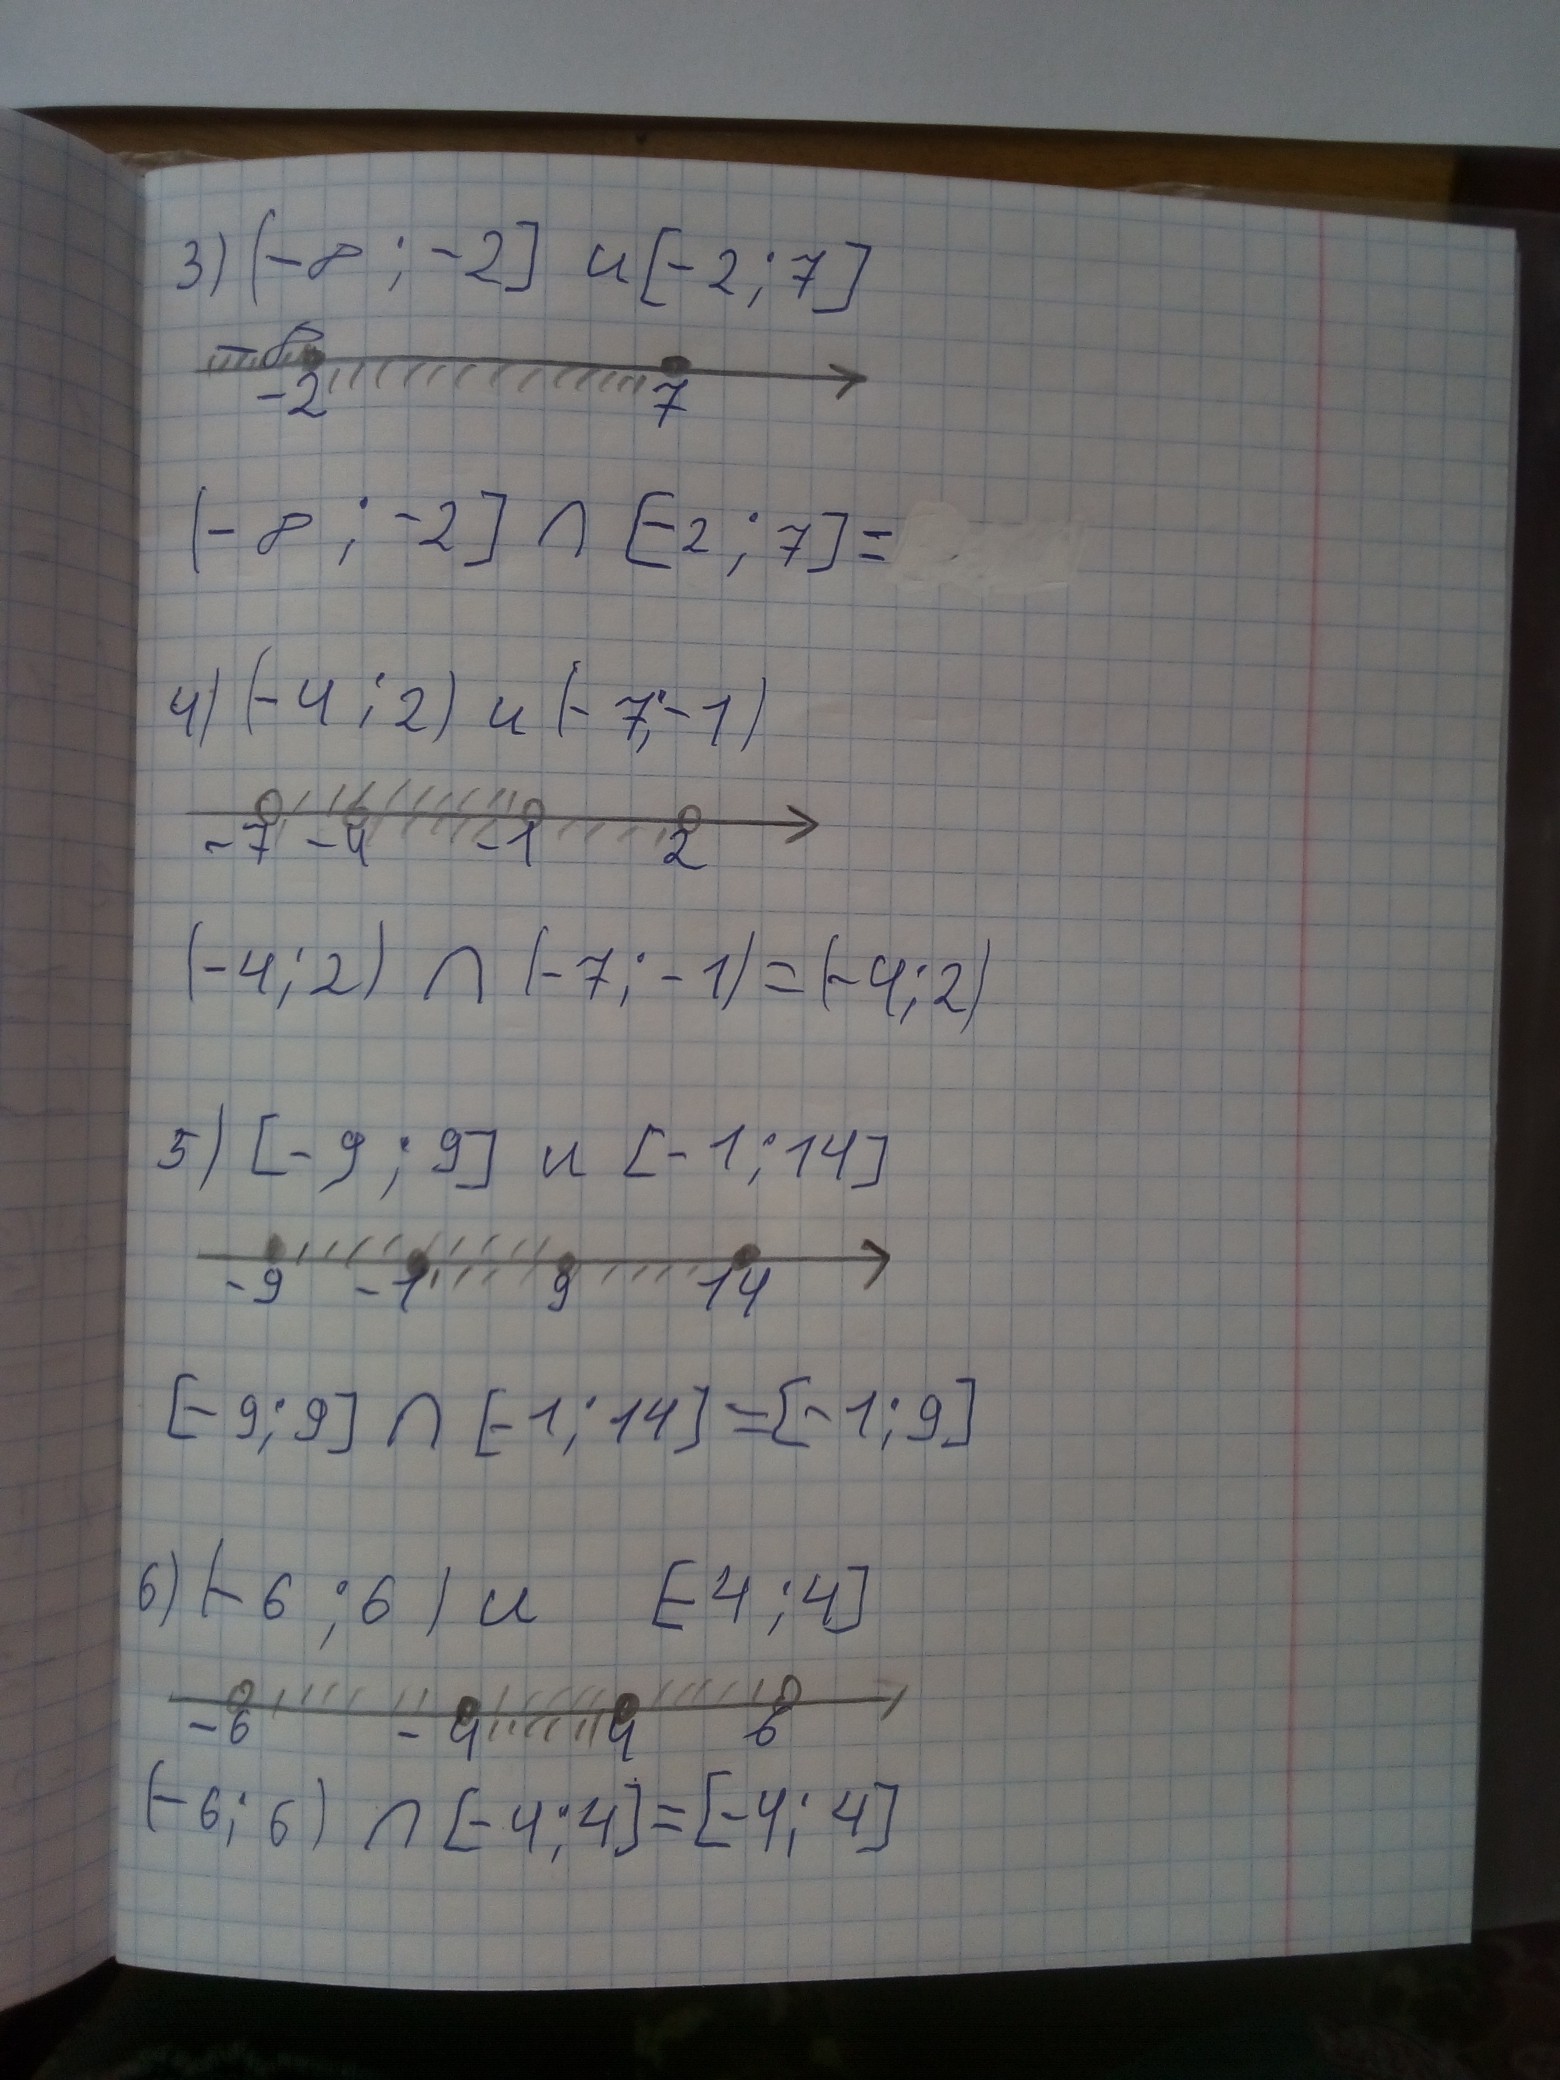 3) (-∞ ; -2] и [-2 ; 7]
-∞
-2 7
(-∞ ; -2] ∩ [-2 ; 7] =
4) (-4 ; 2) и (-7; -1)
-7 -4 -1 2
(-4 ; 2) ∩ (-7 ; -1) = (-4 ; 2)
5) [-9 ; 9] и [-1 ; 14]
-9 -1 9 14
[-9 ; 9] ∩ [-1 ; 14] = [-1 ; 9]
6) (-6 ; 6) и [-4 ; 4]
-6 -4 4 6
(-6 ; 6) ∩ [-4 ; 4] = [-4 ; 4]